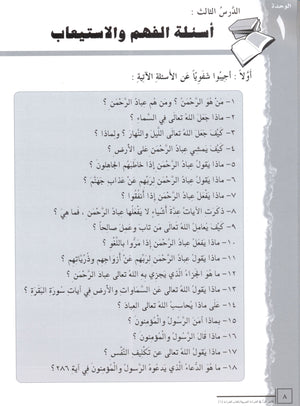 الوحدة
١
الدَّرسُ الثالث :
أسئلة الفهم والاستيعاب
أولاً : أجيبُوا شفَويّاً عَن الأسئلةِ الآتيةِ :
١- مَنْ هُوَ الرَّحْمنُ ؟ ومَن هُم عِبادُ الرَّحْمن ؟
٢- ماذا جَعَلَ اللهُ تعالى في السَّماءِ ؟
٣- كيْفَ جَعَلَ اللهُ تعالى اللَّيلَ والنَّهارَ ؟ ولماذا ؟
٤- كيْفَ يَمشي عِبادُ الرَّحْمن عَلى الأرْضِ ؟
٥- ماذا يَقولُ عِبادُ الرَّحْمن إذا خاطبَهُم الجاهلونَ ؟
٦- ماذا يَقولُ عِبادُ الرَّحْمن لِربِّهم عَن عذابِ جَهَنَّم ؟
٧- ماذا يَفعَلُ عِبادُ الرَّحْمن إذا أنْفَقُوا ؟
٨- ذكَرَت الآياتُ عِدةَ أشْياءٍ لا يَفْعَلُها عِبادُ الرَّحْمن ، فما هِيَ ؟
٩- كيْفَ يُعامِلُ اللهُ تعالى مَن تابَ وعمِلَ صالحاً ؟
١٠- ماذا يَفْعَلُ عِبادُ الرَّحْمن إذا مَرّوا باللَّغْوِ ؟
١١- ماذا يَقولُ عِبادُ الرَّحْمن لِربِّهم عَن أزْواجِهِم وذُرِّيّاتِهم ؟
١٢- ما هوَ الجزاءُ الّذي يَجزِي بهِ اللهُ تعالى عِبادَ الرَّحْمن ؟
١٣- ماذا يَقولُ اللهُ تعالى عَن السَّماواتِ والأرضِ في آياتِ سُورَةِ البَقرَة ؟
١٤- عَلى ماذا يُحاسِبُ اللهُ تعالى العِبادَ ؟
١٥- بِماذا آمَنَ الرَّسُولُ والْمُؤمِنونَ ؟
١٦- ماذا قالَ الرَّسُولُ والْمُؤمِنونَ ؟
١٧- ماذا يَقولُ اللهُ تعالى عَن تكْليفِ النَّفْسِ ؟
١٨- ما هوَ الدُّعاءُ الّذي يَدعُوهُ الرَّسُولُ والْمُؤمِنونَ في آية ٢٨٦ ؟
٨